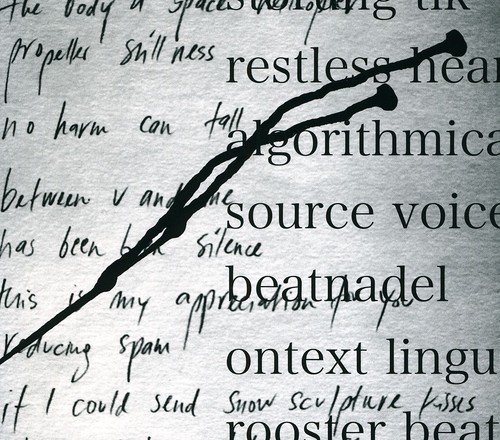 the body a space
propeller stillness
restless hear
no harm can fall
algorithmica
between v and me
source voice
has been silence
beatnadel
this is my appreciation for you
reducing spam
ontext lingu
if I could send snow sculpture kisses
rooster beat